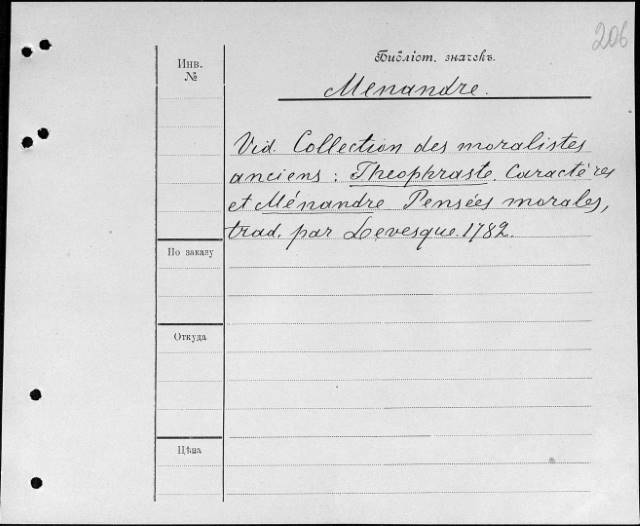 206
Библіот. значекъ.
Menandre.
Инв.
№
Vid. Collection des moralistes
anciens : Theophraste. Caractères
et Ménandre Pensées morales,
trad. par Levesque. 1782.
По заказу
Откуда
Цѣна